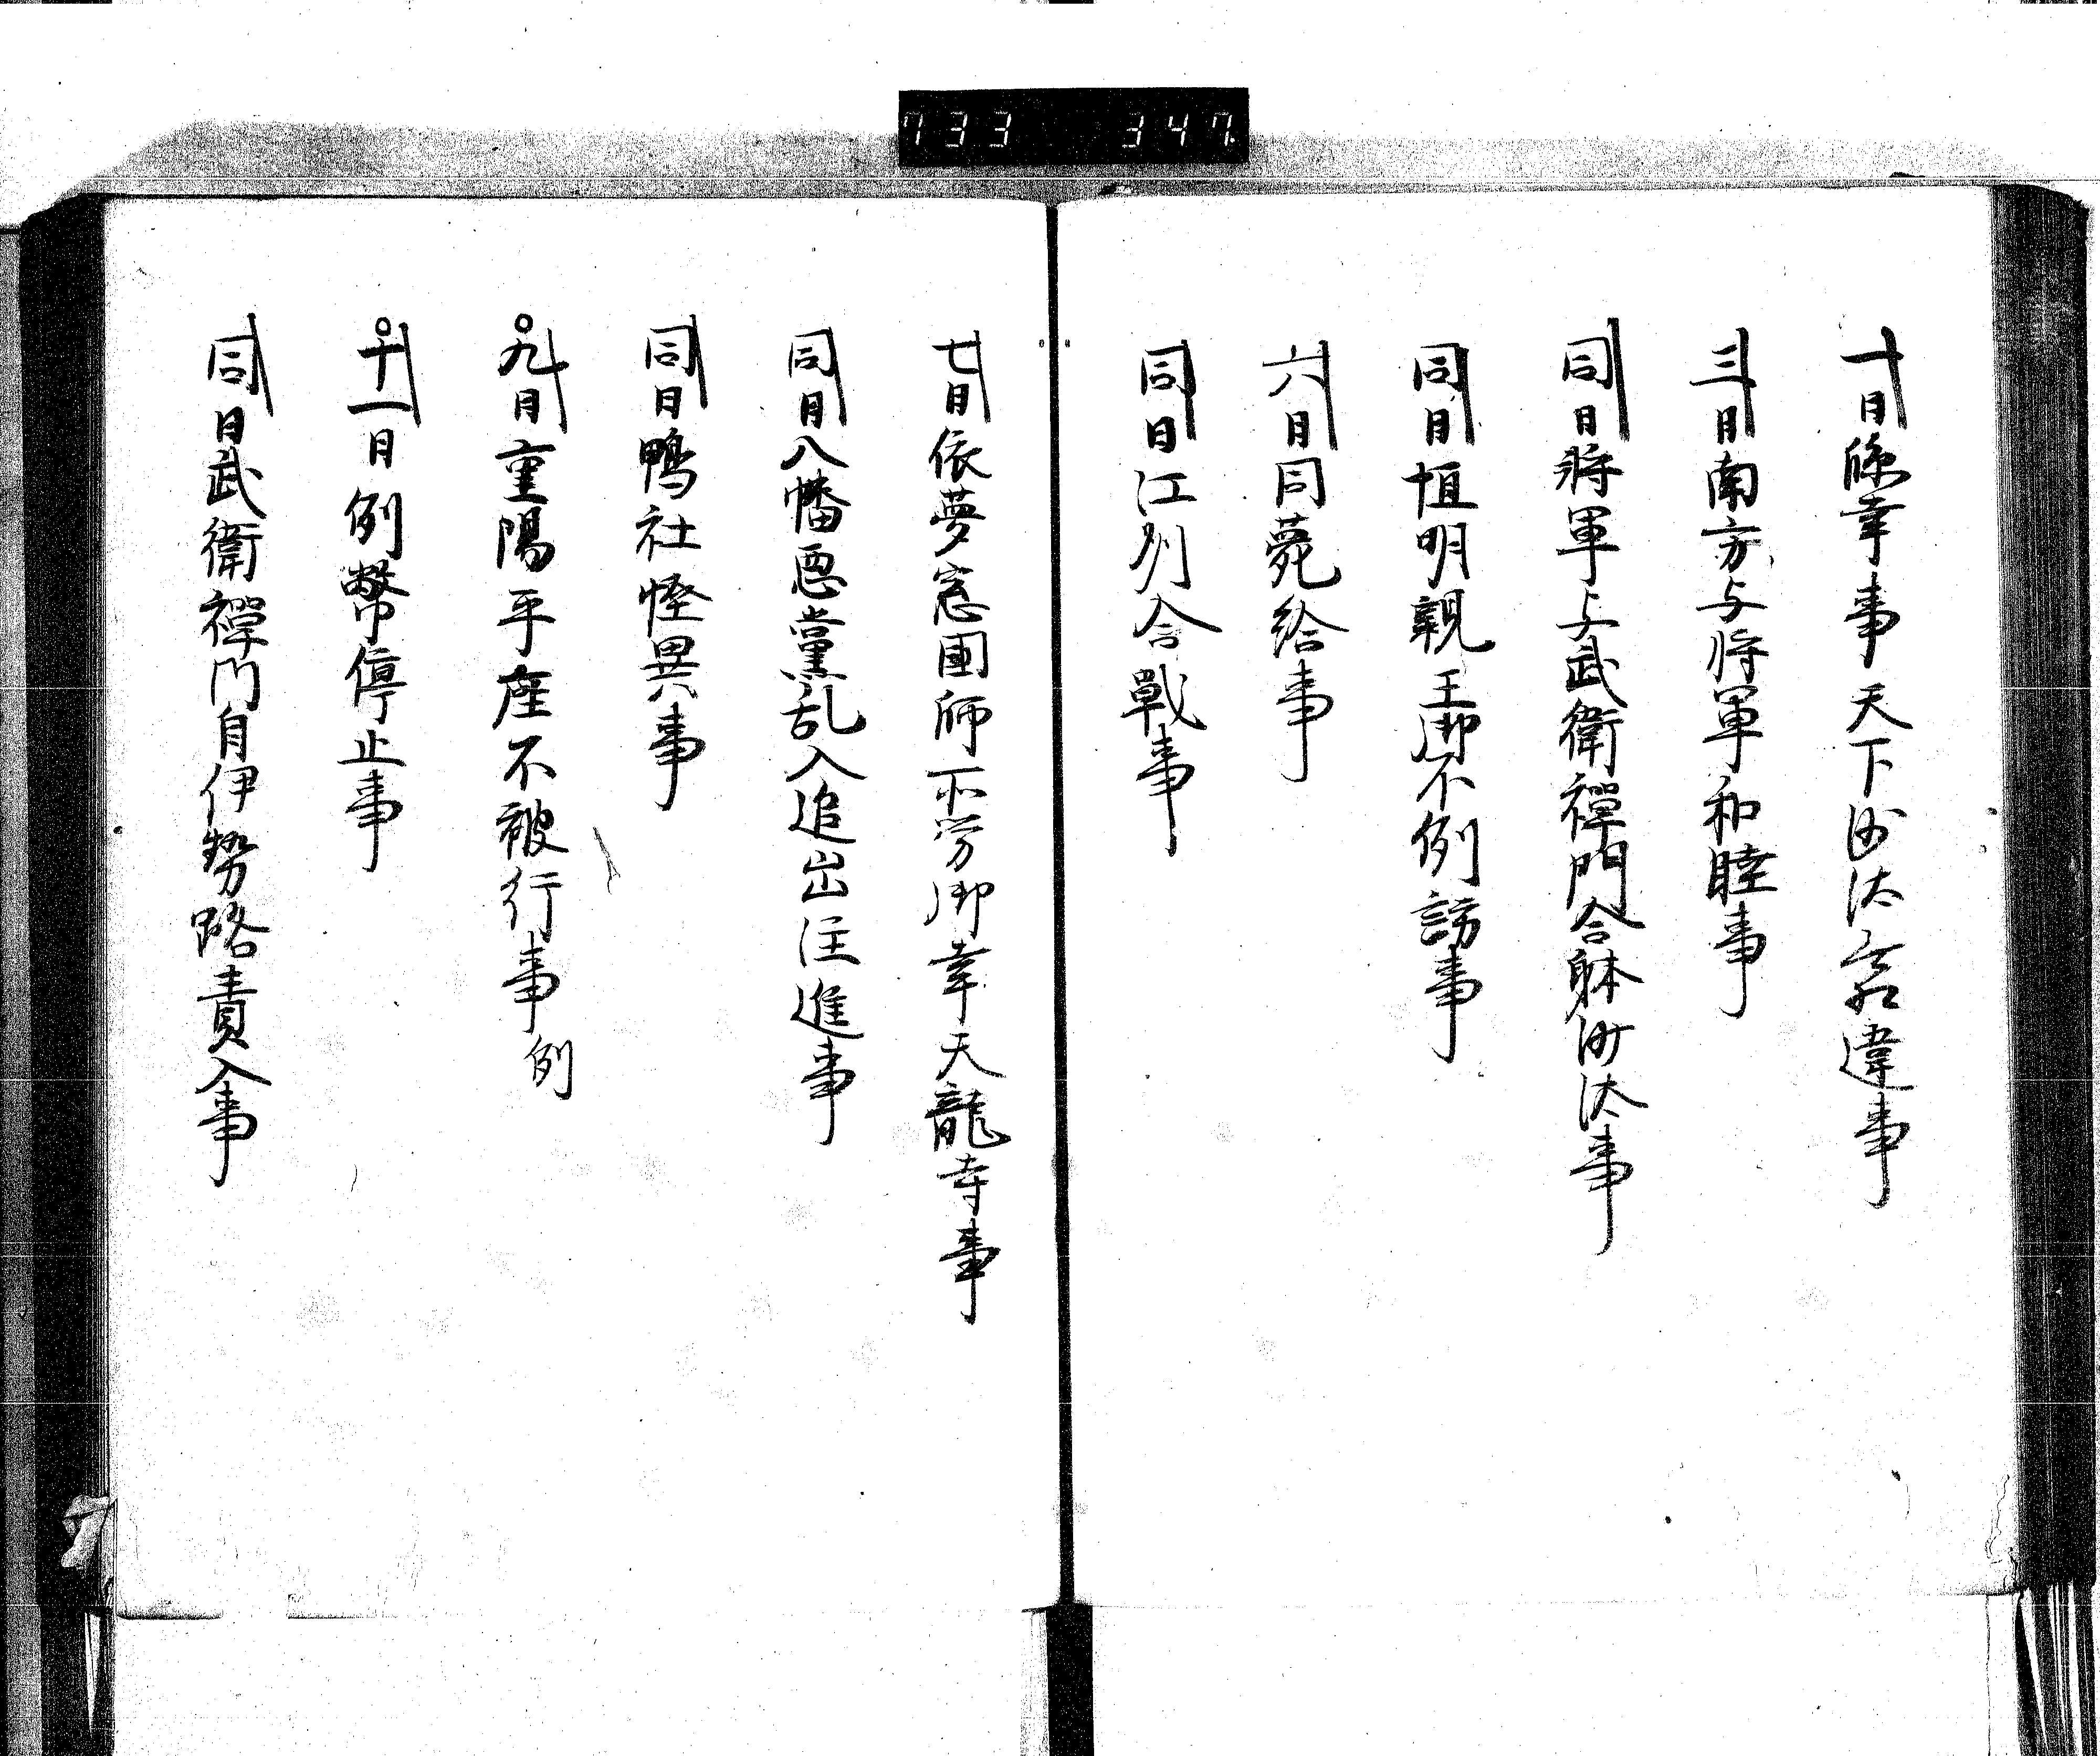 733 347
十月臨幸事天下沙汰違事
三月南方与将軍和睦事
同月將軍与武衛禪門合躰沙汰事
同月恒明親王御不例訪事
六月同薨給事
同月江州合戰事
七月依夢窓國師所労御幸天龍寺事
同月八幡悪黨乱入追出注進事
同月鴨社怪異事
九月重陽平座不被行事例
十一月例幣停止事
同月武衛禪門自伊勢路責入事